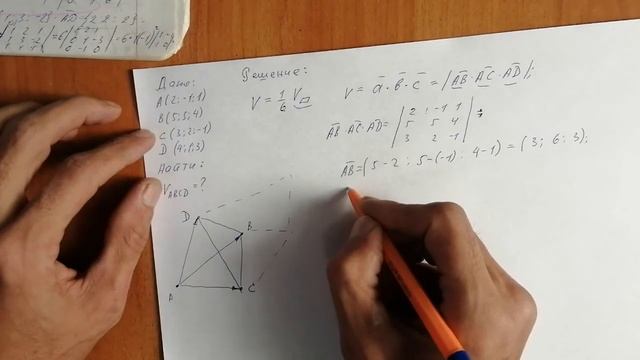 Дано:
A(2;-1;1)
B(5;5;4)
C(3;2;-1)
D(4;1;3)
Найти:
V ABCD = ?
Решение:
V = 1/6 V▱
V = a̅ · b̅ · c̅ = |A̅B̅ · A̅C̅ · A̅D̅|;
A̅B̅ · A̅C̅ · A̅D̅ = | 2 -1 1 |
| 5 5 4 |
| 3 2 -1 |
A̅B̅ = (5-2; 5-(-1); 4-1) = (3; 6; 3);
D
B
A
C